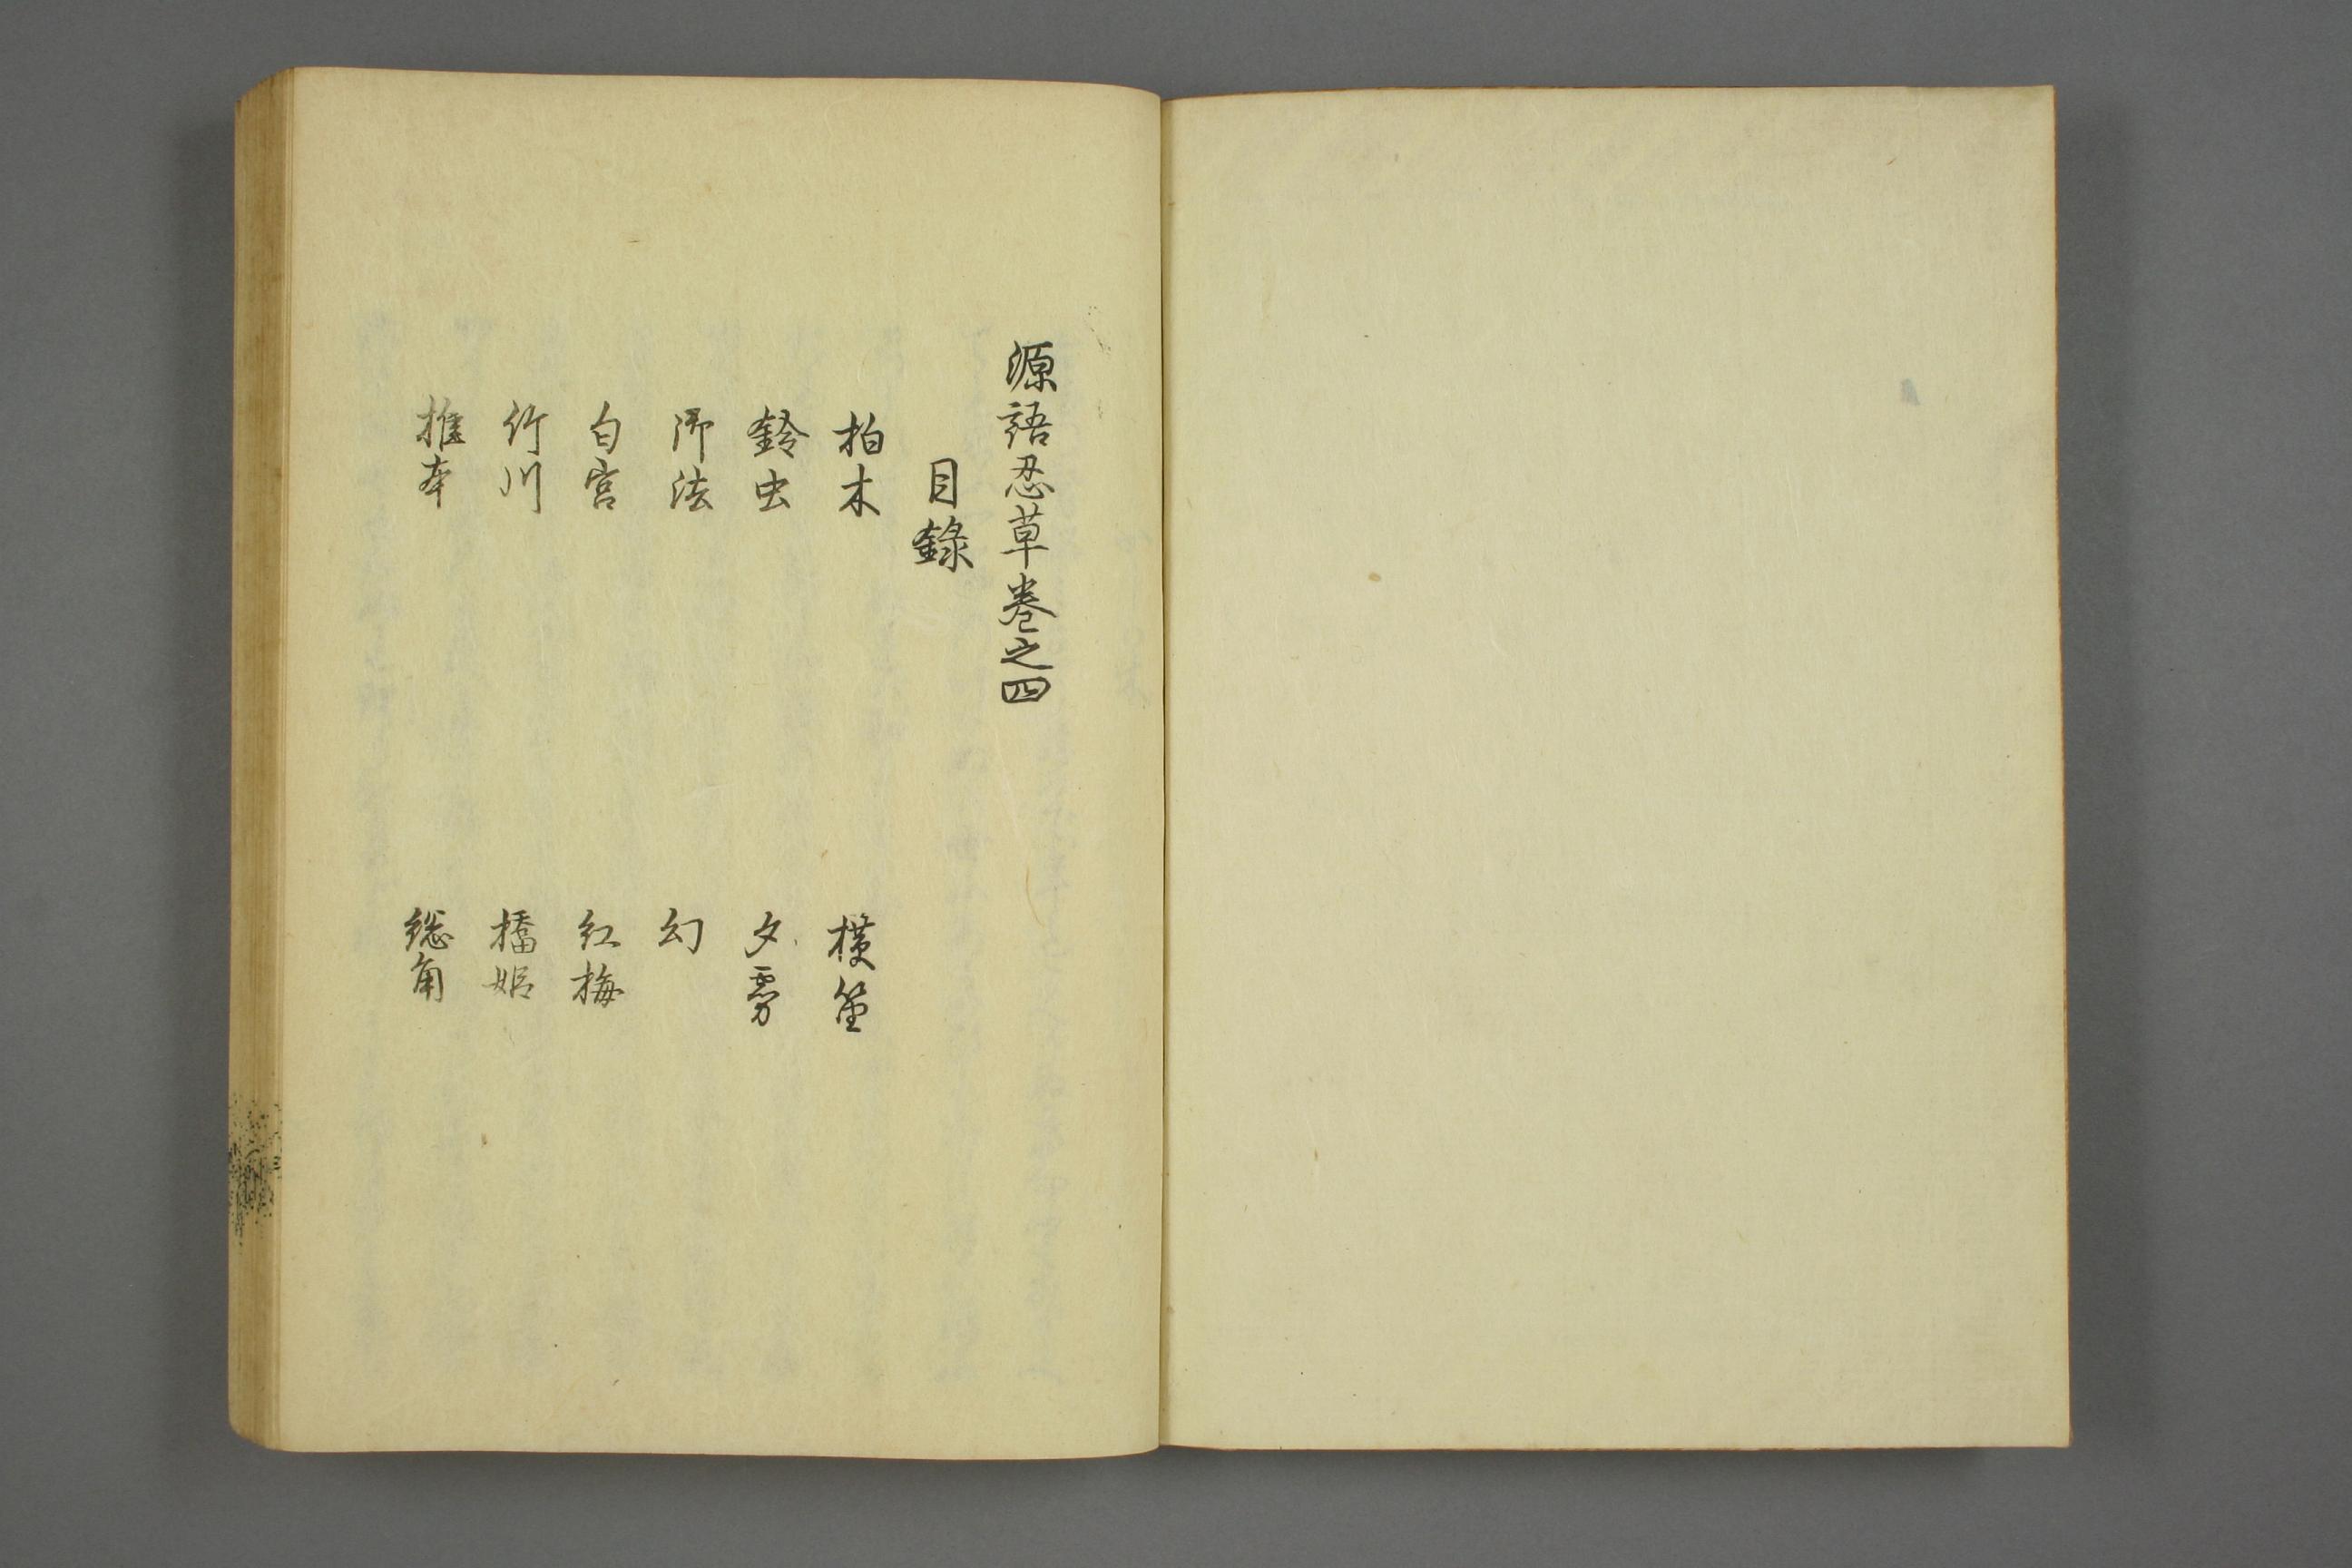 源語忍草巻之四
目録
柏木 横笛
鈴虫 夕霧
御法 幻
匂宮 紅梅
竹川 橋姫
椎本 総角